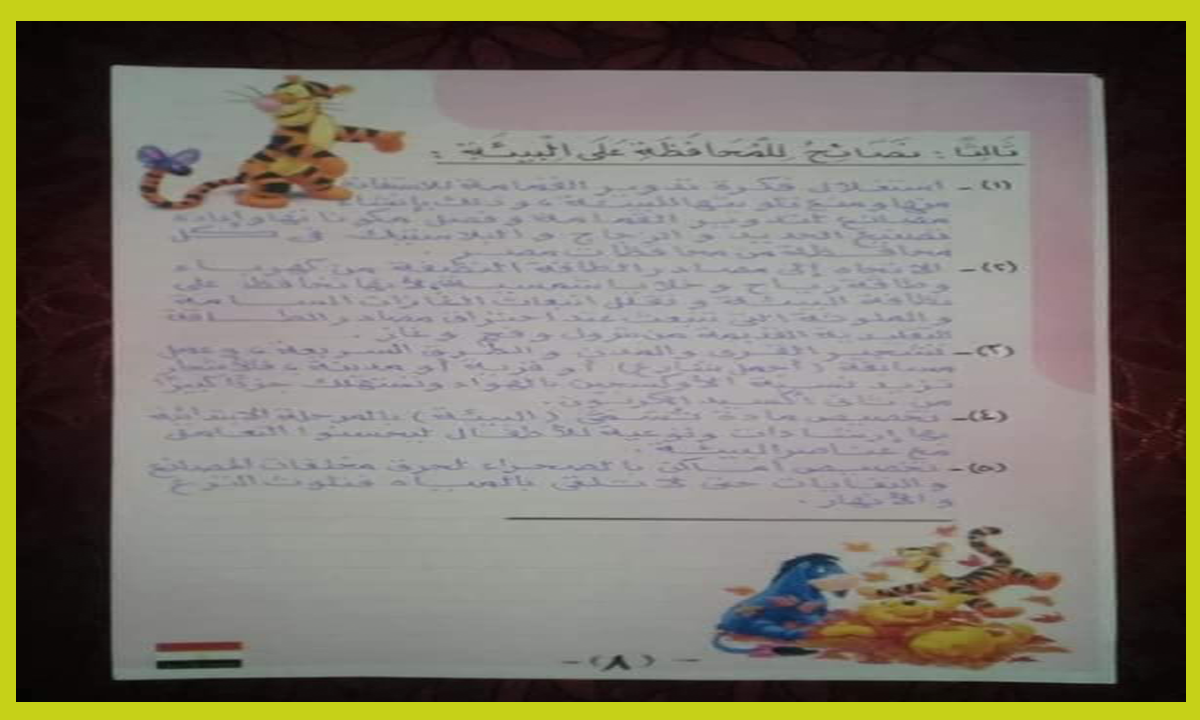 ثَالِثًا : نَصَائِحُ لِلْمُحَافَظَةِ عَلَى الْبِيئَةِ :
(١)- استغلال فكرة تدوير القمامة للاستفادة
منها ومنع تلويثها للبيئة ، وذلك بإنشاء
مصنع لتدوير القمامة وفصل مكوناتها وإعادة
تصنيع الحديد والزجاج والبلاستيك فى كل
محافظة من محافظات مصر .
(٢)- الاتجاه إلى مصادر الطاقة النظيفة من كهرباء
وطاقة رياح وخلايا شمسية لأنها تحافظ على
نظافة البيئة وتقلل انبعاث الغازات السامة
والملوثة التى تنبعث عند احتراق مصادر الطاقة
التقليدية القديمة من بترول وفحم وغاز .
(٣)- تشجير القرى والمدن والطرق السريعة ، وعمل
مسابقة (أجمل شارع) أو قرية أو مدينة ، فالأشجار
تزيد نسبة الأوكسجين بالهواء وتستهلك جزءًا كبيرًا
من ثانى أكسيد الكربون .
(٤)- تخصيص مادة تُسَمَّى (البيئة) بالمرحلة الابتدائية
بها إرشادات وتوعية للأطفال ليحسنوا التعامل
مع عناصر البيئة .
(٥)- تخصيص أماكن بالصحراء لحرق مخلفات المصانع
والنفايات حتى لا تلقى بالمياه فتلوث الترع
والأنهار .
-(٨)-